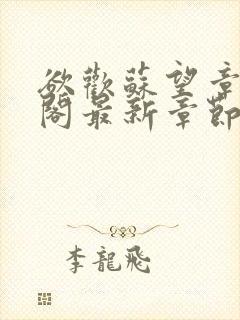 欲歡蘇望章
閣最新章節
李龍飛